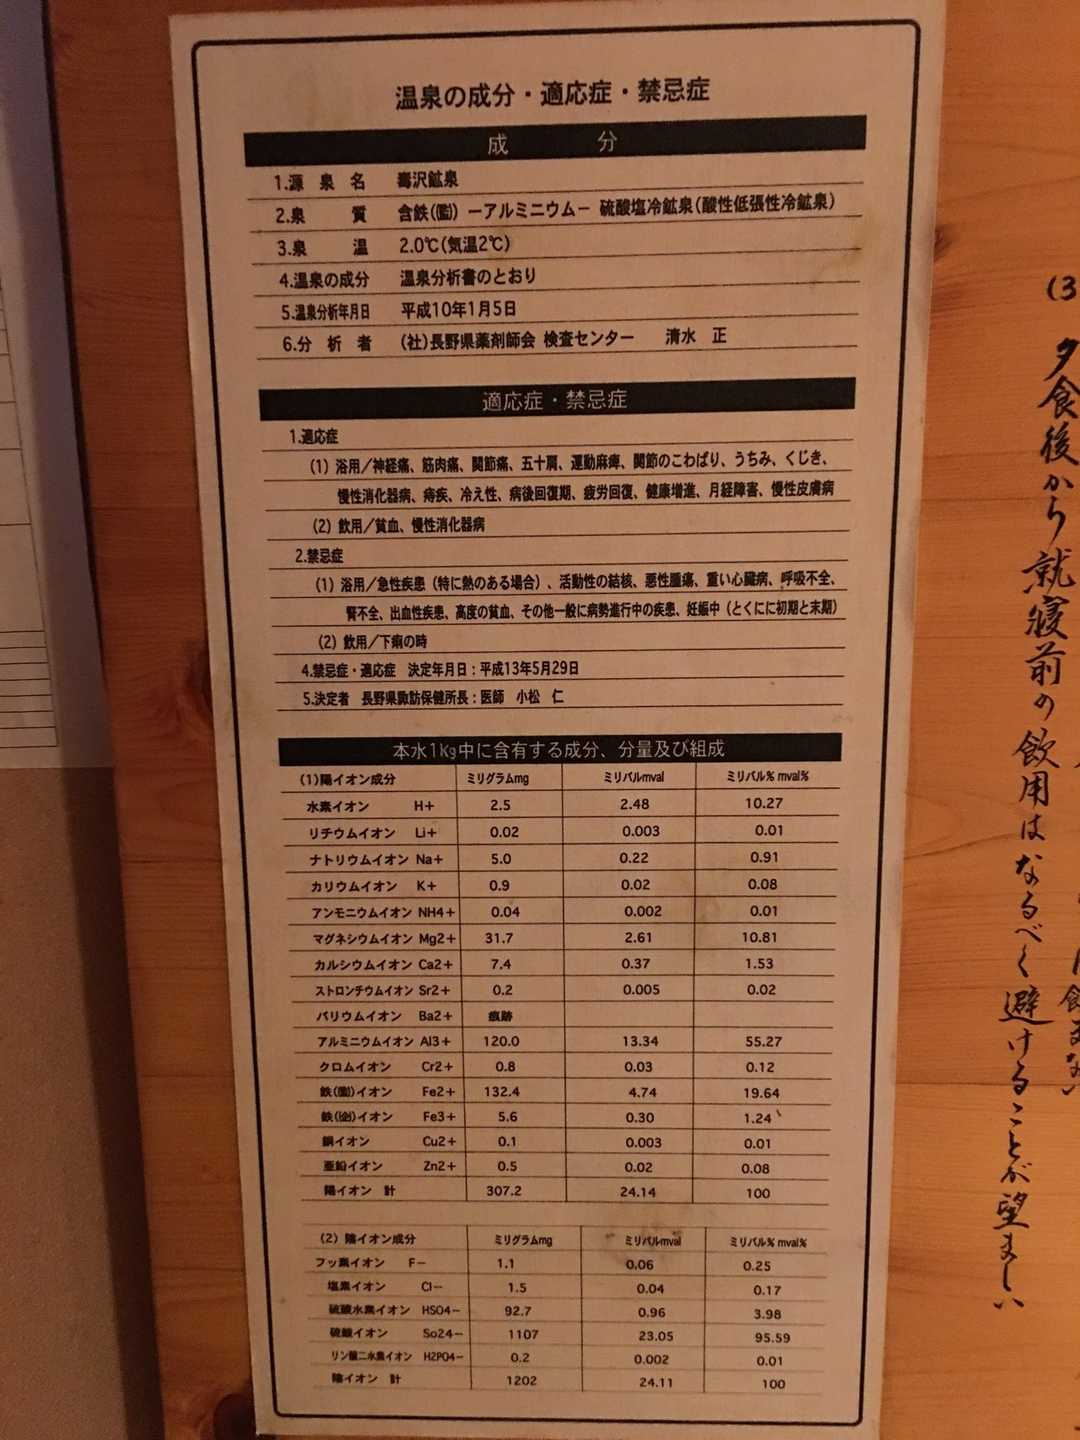 温泉の成分・適応症・禁忌症
成 分
1.源 泉 名 毒沢鉱泉
2.泉 質 含鉄(Ⅱ) ーアルミニウムー 硫酸塩冷鉱泉(酸性低張性冷鉱泉)
3.泉 温 2.0℃(気温2℃)
4.温泉の成分 温泉分析書のとおり
5.温泉分析年月日 平成10年1月5日
6.分 析 者 (社)長野県薬剤師会 検査センター 清水 正
適応症・禁忌症
1.適応症
(1) 浴用/神経痛、筋肉痛、関節痛、五十肩、運動麻痺、関節のこわばり、うちみ、くじき、
慢性消化器病、痔疾、冷え性、病後回復期、疲労回復、健康増進、月経障害、慢性皮膚病
(2) 飲用/貧血、慢性消化器病
2.禁忌症
(1) 浴用/急性疾患(特に熱のある場合)、活動性の結核、悪性腫瘍、重い心臓病、呼吸不全、
腎不全、出血性疾患、高度の貧血、その他一般に病勢進行中の疾患、妊娠中(とくにに初期と末期)
(2) 飲用/下痢の時
4.禁忌症・適応症 決定年月日:平成13年5月29日
5.決定者 長野県諏訪保健所長:医師 小松 仁
本水1Kg中に含有する成分、分量及び組成
(1)陽イオン成分 ミリグラムmg ミリバルmval ミリバル% mval%
水素イオン H+ 2.5 2.48 10.27
リチウムイオン Li+ 0.02 0.003 0.01
ナトリウムイオン Na+ 5.0 0.22 0.91
カリウムイオン K+ 0.9 0.02 0.08
アンモニウムイオン NH4+ 0.04 0.002 0.01
マグネシウムイオン Mg2+ 31.7 2.61 10.81
カルシウムイオン Ca2+ 7.4 0.37 1.53
ストロンチウムイオン Sr2+ 0.2 0.005 0.02
バリウムイオン Ba2+ 痕跡
アルミニウムイオン Al3+ 120.0 13.34 55.27
クロムイオン Cr2+ 0.8 0.03 0.12
鉄(Ⅱ)イオン Fe2+ 132.4 4.74 19.64
鉄(Ⅲ)イオン Fe3+ 5.6 0.30 1.24
銅イオン Cu2+ 0.1 0.003 0.01
亜鉛イオン Zn2+ 0.5 0.02 0.08
陽イオン 計 307.2 24.14 100
(2) 陰イオン成分 ミリグラムmg ミリバルmval ミリバル% mval%
フッ素イオン F− 1.1 0.06 0.25
塩素イオン Cl− 1.5 0.04 0.17
硫酸水素イオン HSO4− 92.7 0.96 3.98
硫酸イオン So24− 1107 23.05 95.59
リン酸二水素イオン H2PO4− 0.2 0.002 0.01
陰イオン 計 1202 24.11 100
(3
夕食後から就寝前の飲用はなるべく避けることが望ましい